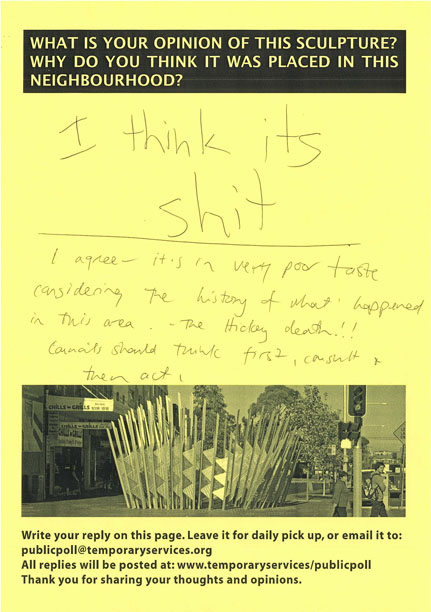 WHAT IS YOUR OPINION OF THIS SCULPTURE?
WHY DO YOU THINK IT WAS PLACED IN THIS
NEIGHBOURHOOD?
I think it's
shit
I agree - it's in very poor taste
considering the history of what happened
in this area. - The Hickey death!!!
Councils should think first, consult &
then act.
CHILLI'S GRILLS
Write your reply on this page. Leave it for daily pick up, or email it to:
publicpoll@temporaryservices.org
All replies will be posted at: www.temporaryservices/publicpoll
Thank you for sharing your thoughts and opinions.